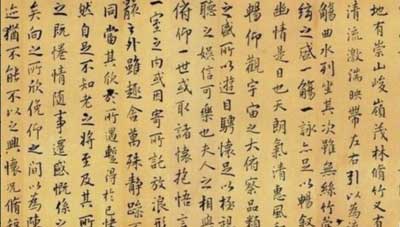 地有崇山峻嶺茂林脩竹又有
清流激湍暎帶左右引以為流
觴曲水列坐其次雖無絲竹管
弦之盛一觴一詠亦足以暢叙
幽情是日也天朗氣清惠風和
暢仰觀宇宙之大俯察品類
之盛所以遊目騁懷足以極視
聽之娛信可樂也夫人之相與
俯仰一世或取諸懷抱悟言
一室之內或因寄所託放浪形
骸之外雖趣舍萬殊靜躁不
同當其欣於所遇蹔得於己怏
然自足不知老之將至及其所
之既惓情隨事遷感慨係之
矣向之所欣俛仰之間以為陳
迹猶不能不以之興懷況脩短